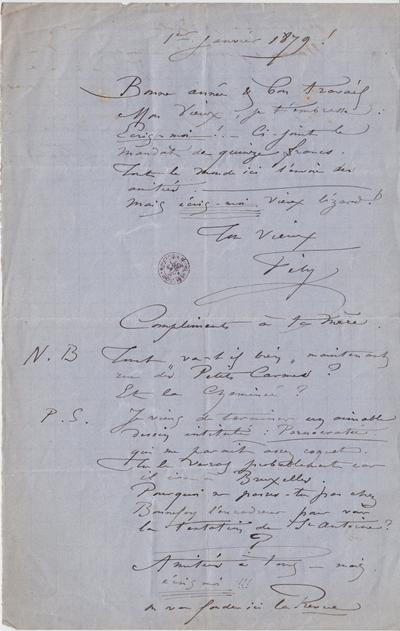 1er Janvier 1879!
Bonne année & bon travail
Mon Vieux, je t'embrasse.
Ecris-moi! - Ci-joint le
mandat de quinze francs.
Tout le monde ici t'envoie des
amitiés.
Mais écris-moi vieux lézard!
Ton vieux
Fély
Compliments à ta Mère.
N.B Tout va-t-il bien, maintenant
rue des Petits Carmes?
Et la Cheminée?
P.S. Je viens de terminer un aimable
dessin intitulé: Pornocratie
qui me parait assez coquet.
Tu le verras probablement car
il ira à Bruxelles.
Pourquoi ne passes-tu pas chez
l'encadreur pour voir
la tentation de St Antoine?
?
Amitiés à tous - mais
écris moi!!!
on va fonder ici la Revue